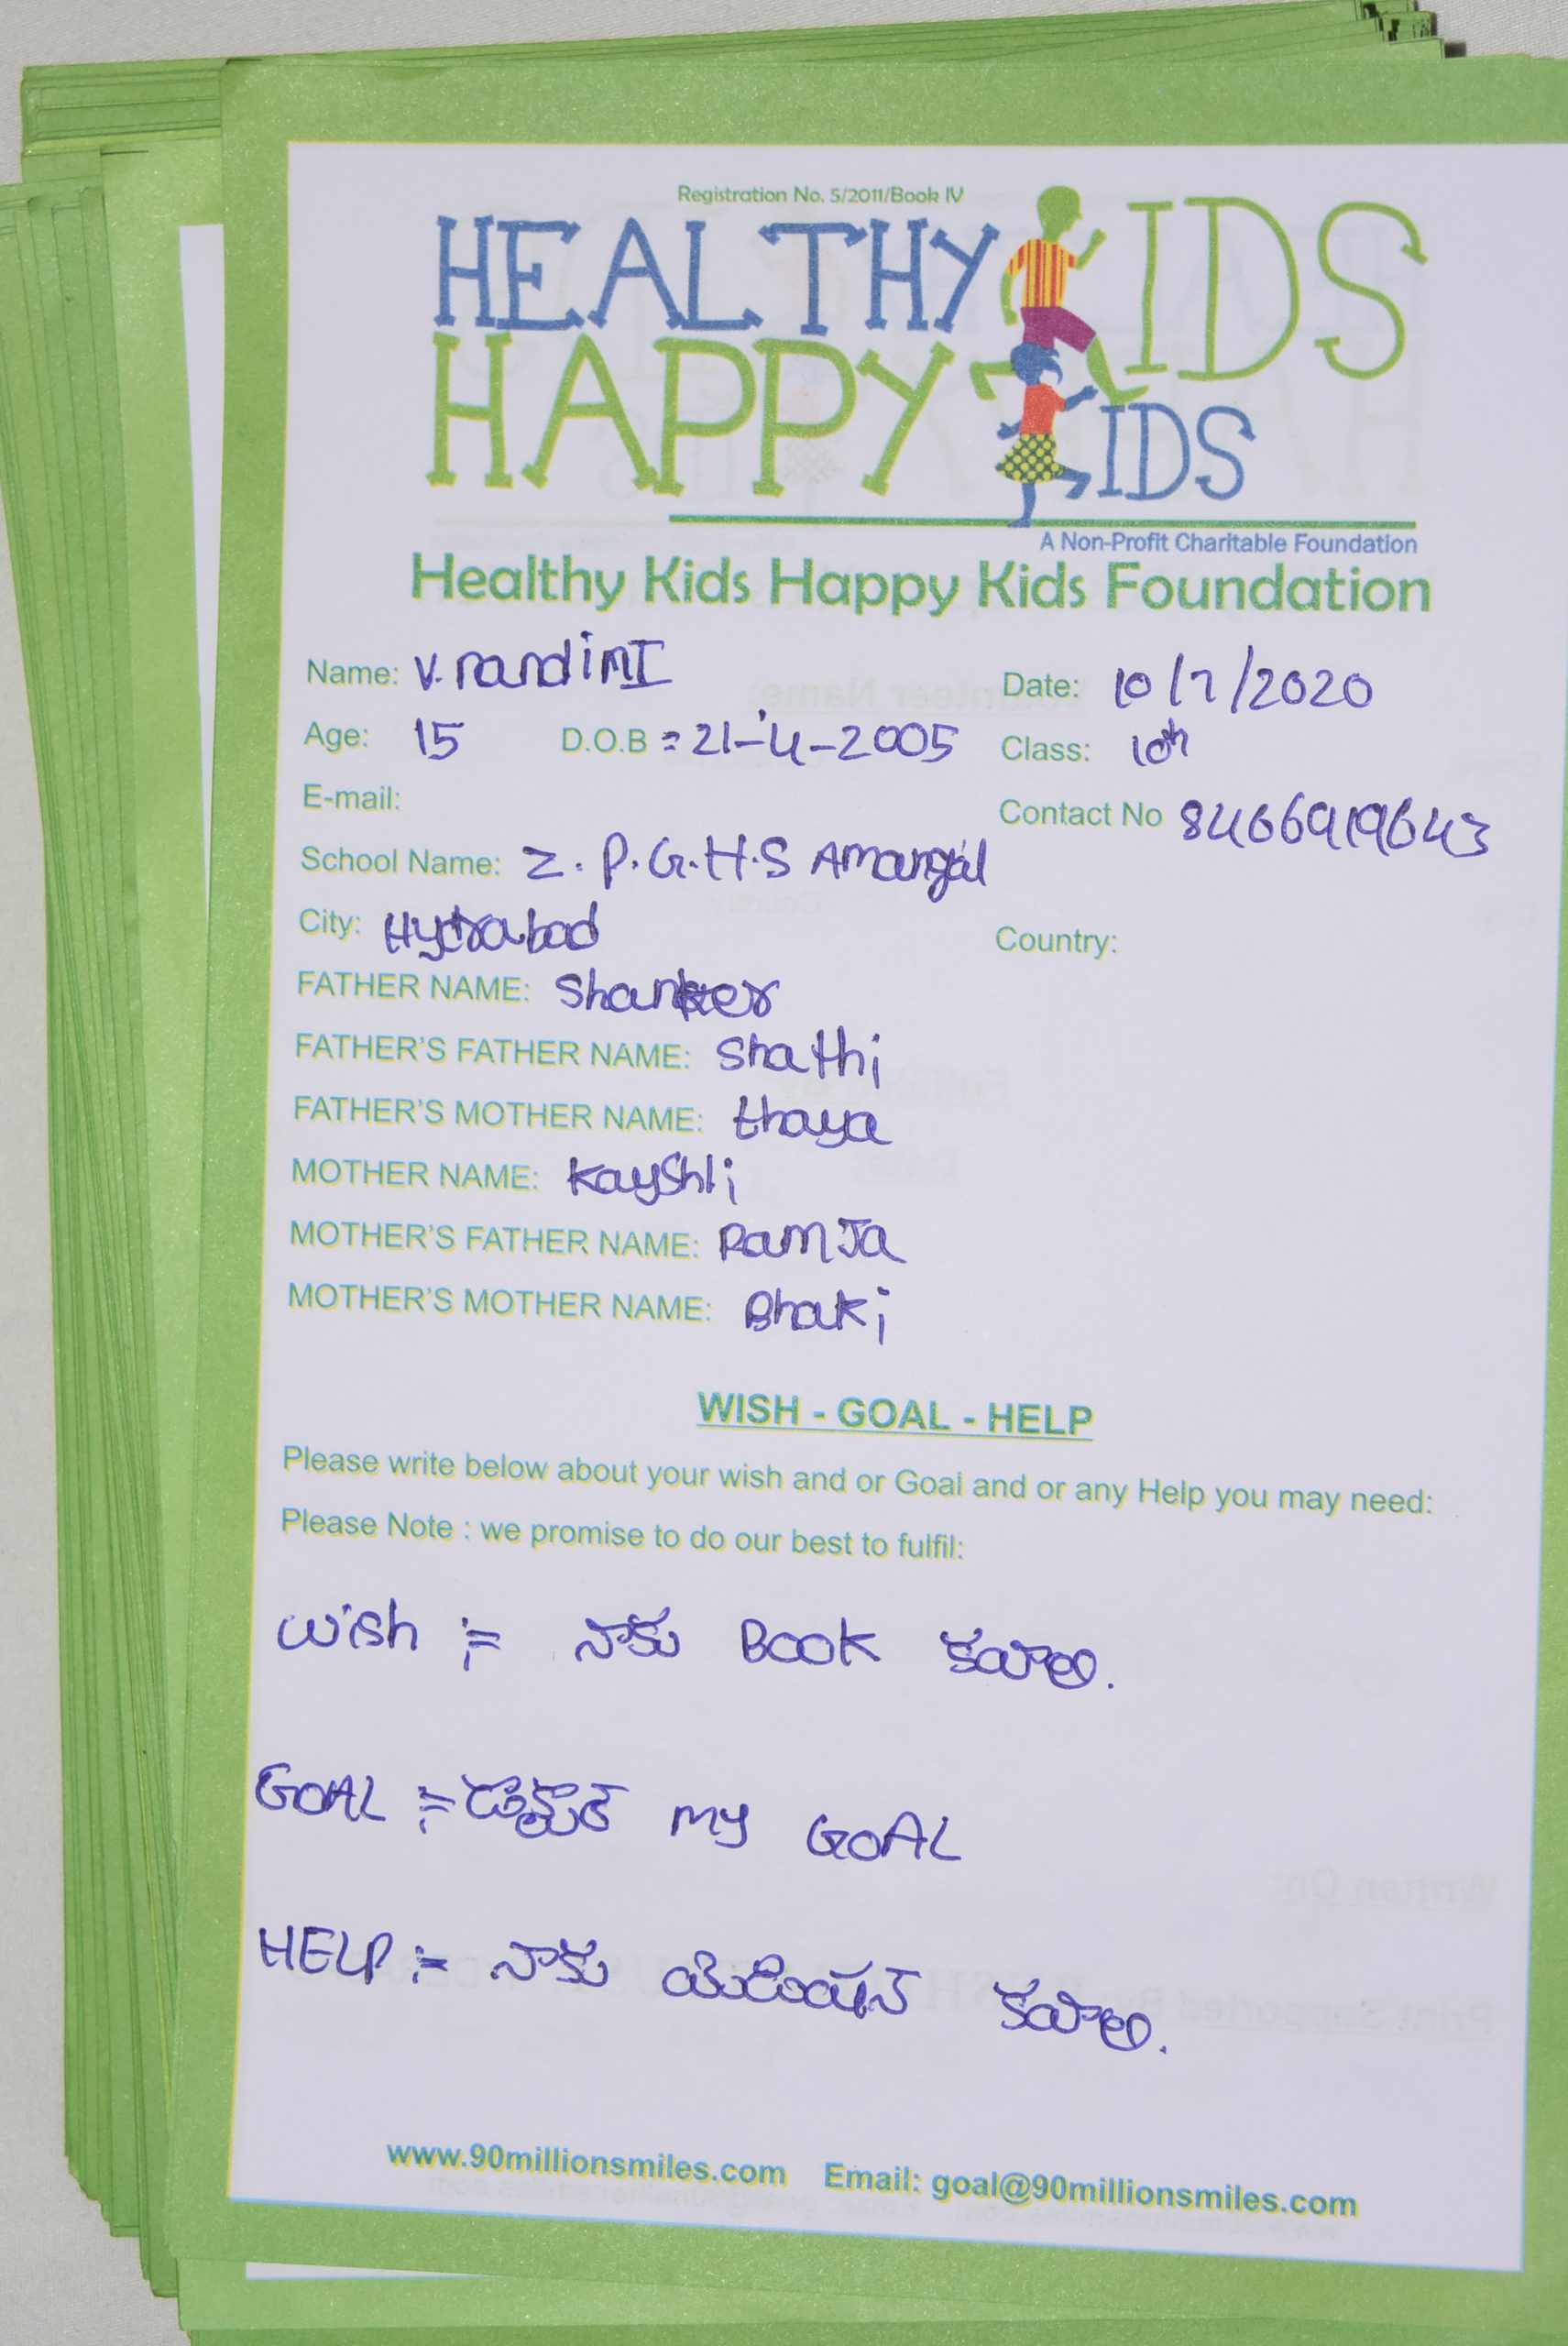 Registration No. 5/2011/Book IV
HEALTHY KIDS
HAPPY KIDS
A Non-Profit Charitable Foundation
Healthy Kids Happy Kids Foundation
Name: V. nandinI Date: 10/7/2020
Age: 15 D.O.B = 21-4-2005 Class: 10th
E-mail: Contact No 8466919643
School Name: Z. P. G. H. S Amangal
City: Hydrabad Country:
FATHER NAME: Shanker
FATHER'S FATHER NAME: Shathi
FATHER'S MOTHER NAME: thaya
MOTHER NAME: Kayshli
MOTHER'S FATHER NAME: Ramja
MOTHER'S MOTHER NAME: Bhaki
WISH - GOAL - HELP
Please write below about your wish and or Goal and or any Help you may need:
Please Note : we promise to do our best to fulfil:
wish := నాకు BOOK కవాలి.
GOAL := my GOAL
HELP := నాకు కవాలి.
www.90millionsmiles.com Email: goal@90millionsmiles.com